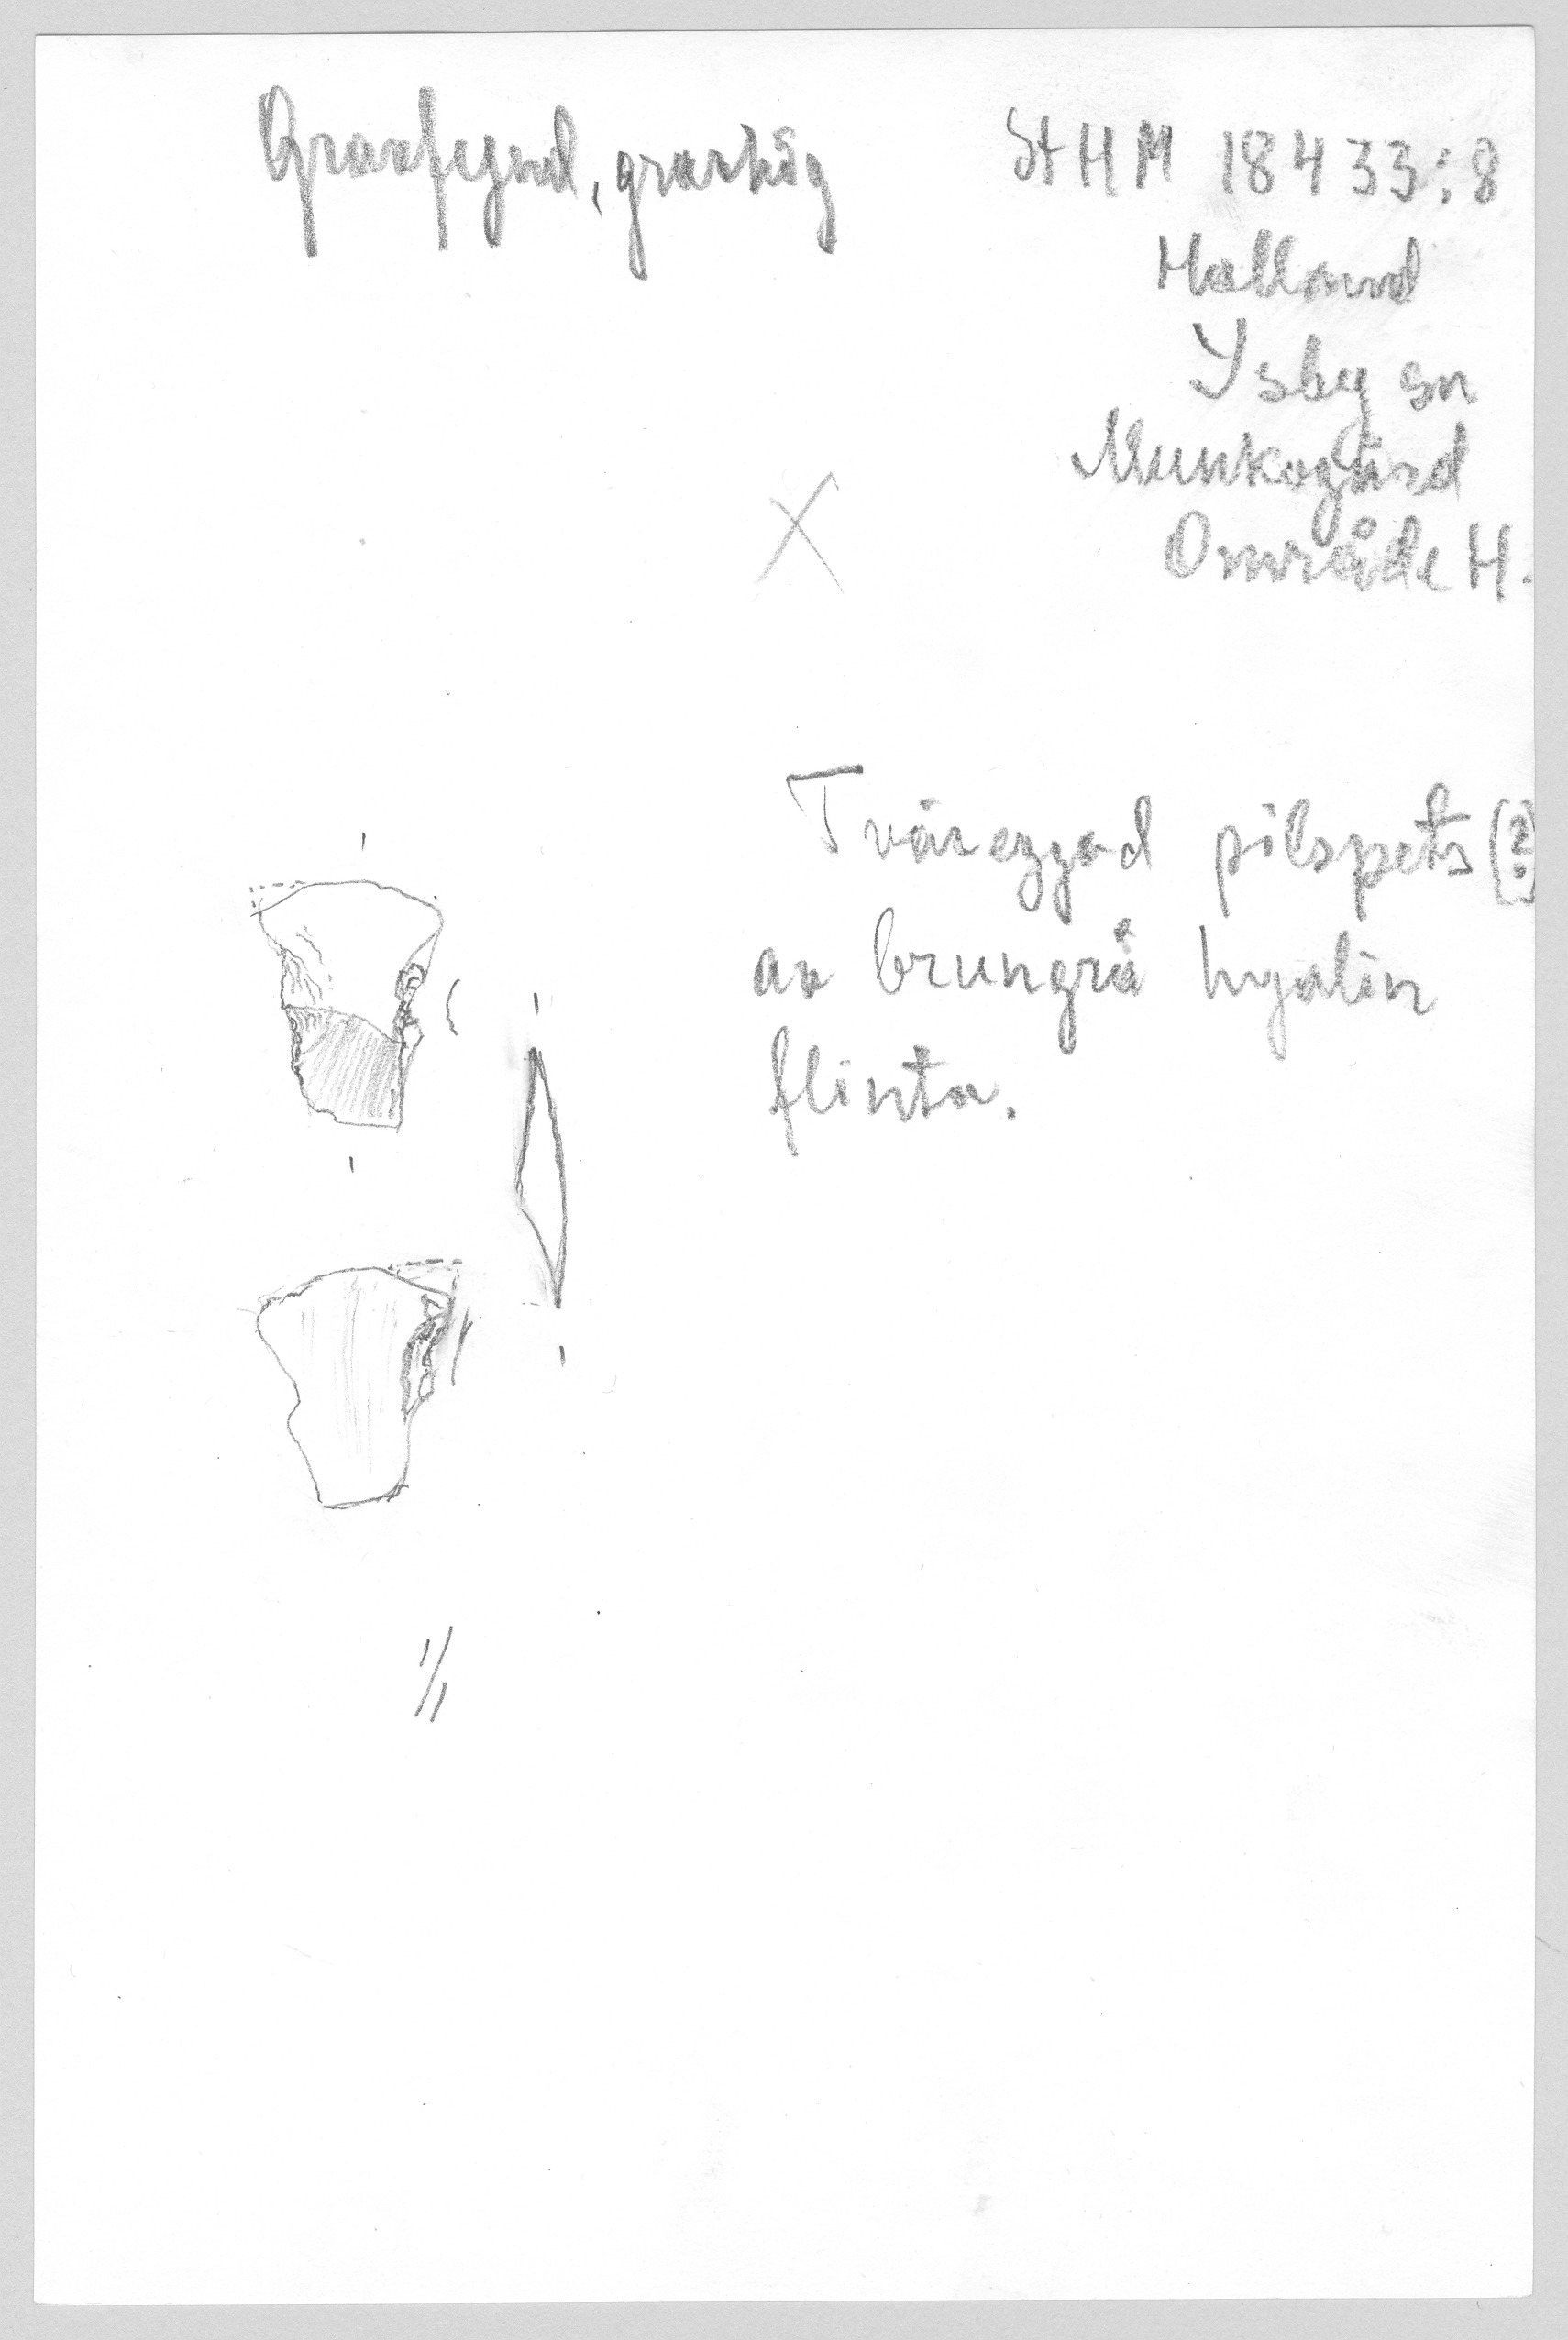 Gravfynd, gravhög
StHM 18433:8
Halland
Ysby sn
Munkagård
Område H.
Tväreggad pilspets (?)
av brungrå hyalin
flinta.
1/1